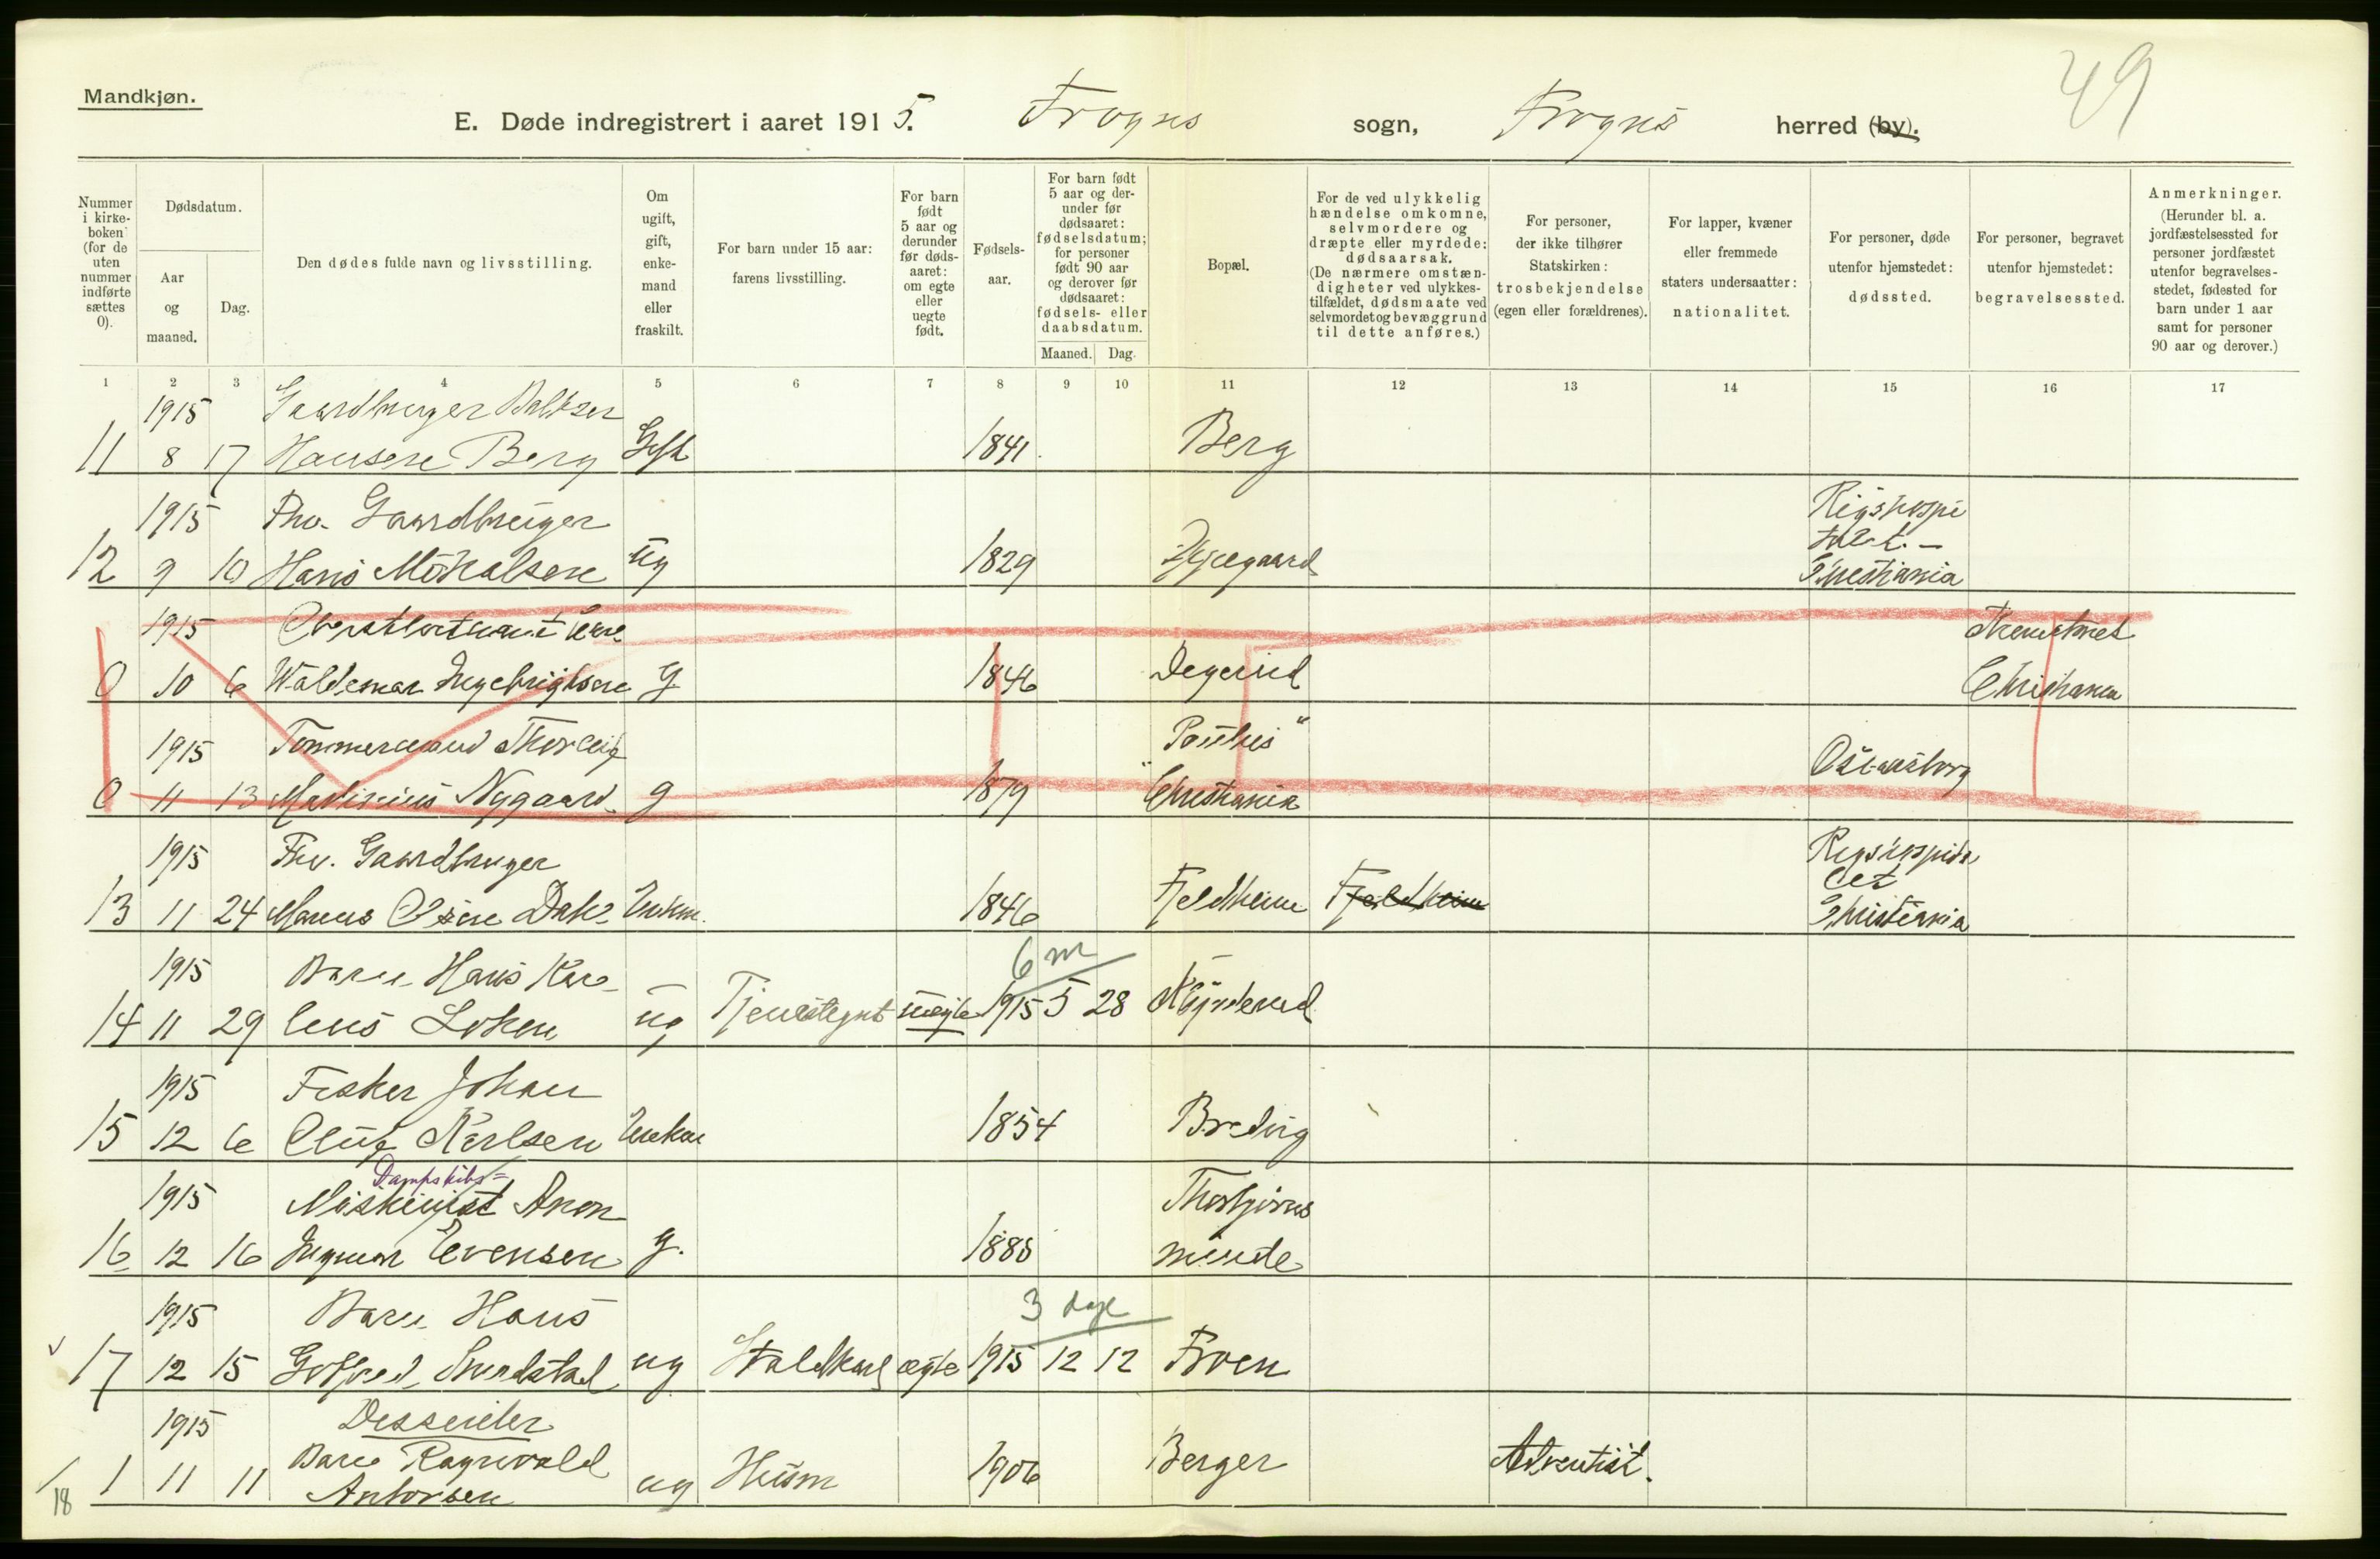 49
Mandkjøn.
E. Døde indregistrert i aaret 1915. Frogns sogn, Frogns herred (by).
Nummer i kirke-boken (for de uten nummer indførte sættes 0).
Dødsdatum.
Aar og maaned.
Dag.
Den dødes fulde navn og livsstilling.
Om ugift, gift, enke-mand eller fraskilt.
For barn under 15 aar: farens livsstilling.
For barn født 5 aar og derunder før døds-aaret: om egte eller uegte født.
Fødsels-aar.
For barn født 5 aar og der-under før dødsaaret: fødselsdatum; for personer født 90 aar og derover før dødsaaret: fødsels- eller daabsdatum.
Maaned. Dag.
Bopæl.
For de ved ulykkelig hændelse omkomne, selvmordere og dræpte eller myrdede: dødsaarsak. (De nærmere omstæn-digheter ved ulykkes-tilfældet, dødsmaate ved selvmordet og bevæggrund til dette anføres.)
For personer, der ikke tilhører Statskirken: trosbekjendelse (egen eller forældrenes).
For lapper, kvæner eller fremmede staters undersaatter: nationalitet.
For personer, døde utenfor hjemstedet: dødssted.
For personer, begravet utenfor hjemstedet: begravelsessted.
Anmerkninger. (Herunder bl. a. jordfæstelsessted for personer jordfæstet utenfor begravelses-stedet, fødested for barn under 1 aar samt for personer 90 aar og derover.)
1 2 3 4 5 6 7 8 9 10 11 12 13 14 15 16 17
1915 Gaardbruger Baltzer
11 8 17 Hansen Berg Gift 1841 Berg
1915 Fhv. Gaardbruger Rigshospi
talet. –
12 9 10 Hans Mikalsen ug 1829 Christiania
1915
0 10 6 Waldemar Ingebrigtsen g 1846 Degerud Christiania
1915 Tømmermand Thorleif
0 11 13 Nygaard g 1879 Christiania Oscarsborg
1915 Fhv. Gaardbruger Rigshospita
let
13 11 24 Marius Olsen Dal Enkm. 1846 Fjeldheim Fjeldheim Christiania
6 m
1915 Barn Hans Kar-
14 11 29 ug Tjenestegut uegte 1915 5 28
1915 Fisker Johan
15 12 6 Oluf Karlsen Enkm 1854
Dampskibs=
1915 Maskinist Anon Thorbjørns
16 12 16 Ingmar Evensen g. 1888 minde
3 dage
1915 Barn Hans
17 12 15 Gotfred Sundstad ug Staldkarl egte 1915 12 12 Froen
1915 Dissenter
Barn Ragnvald
1 11 11 Antonsen ug Husm 1906 Berger Adventist.
18